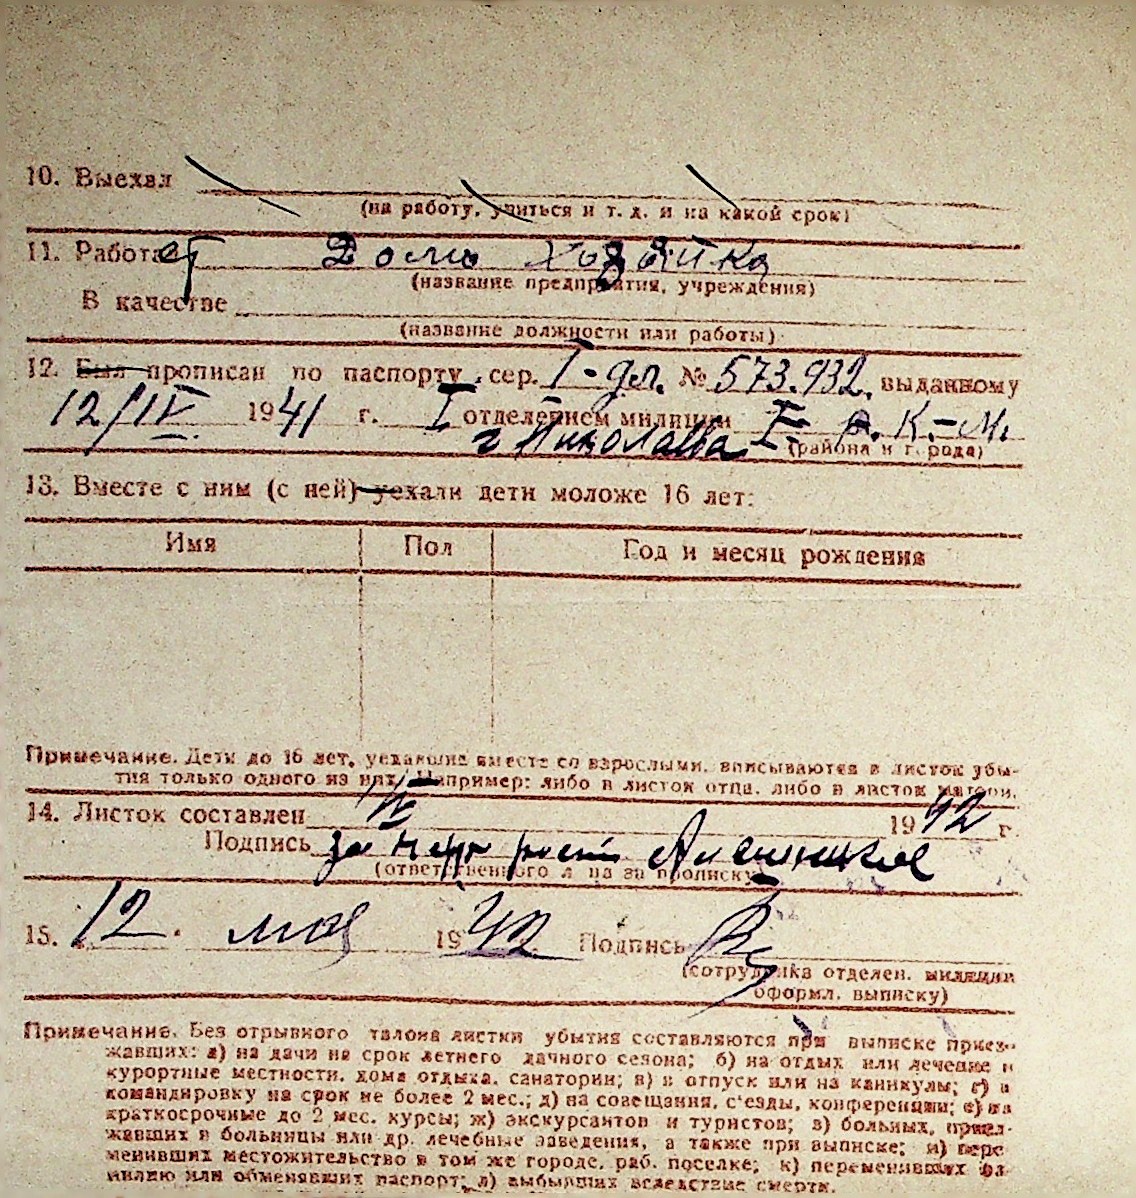 10. Выехал
(на работу, учиться и т. д. и на какой срок)
11. Работает Дома Хозяйка
(название предприятия, учреждения)
В качестве
(название должности или работы)
12. Был прописан по паспорту сер. I-дл. № 573.932 выданному
12/IV. 1941 г. I отделением милиции Г. Р. К.-М.
г Николаева (района и города)
13. Вместе с ним (с ней) уехали дети моложе 16 лет:
Имя Пол Год и месяц рождения
Примечание. Дети до 16 лет, уехавшие вместе со взрослыми, вписываются в листок убы-
тия только одного из них. Например: либо в листок отца, либо в листок матери.
14. Листок составлен 1942 г.
Подпись за
(ответственного л ца за прописку)
15. 12. мая 1942 Подпись
(сотрудника отделен. милиции
оформл. выписку)
Примечание. Без отрывного талона листки убытия составляются при выписке приез-
жавших: а) на дачи на срок летнего дачного сезона; б) на отдых или лечение в
курортные местности, дома отдыха, санатории; в) в отпуск или на каникулы; г) в
командировку на срок не более 2 мес.; д) на совещания, с'езды, конференции; е) на
краткосрочные до 2 мес. курсы; ж) экскурсантов и туристов; з) больных, приез-
жавших в больницы или др. лечебные заведения, а также при выписке; и) пере
менивших местожительство в том же городе, раб. поселке; к) переменивших фа
милию или обменявших паспорт; л) выбывших вследствие смерти.